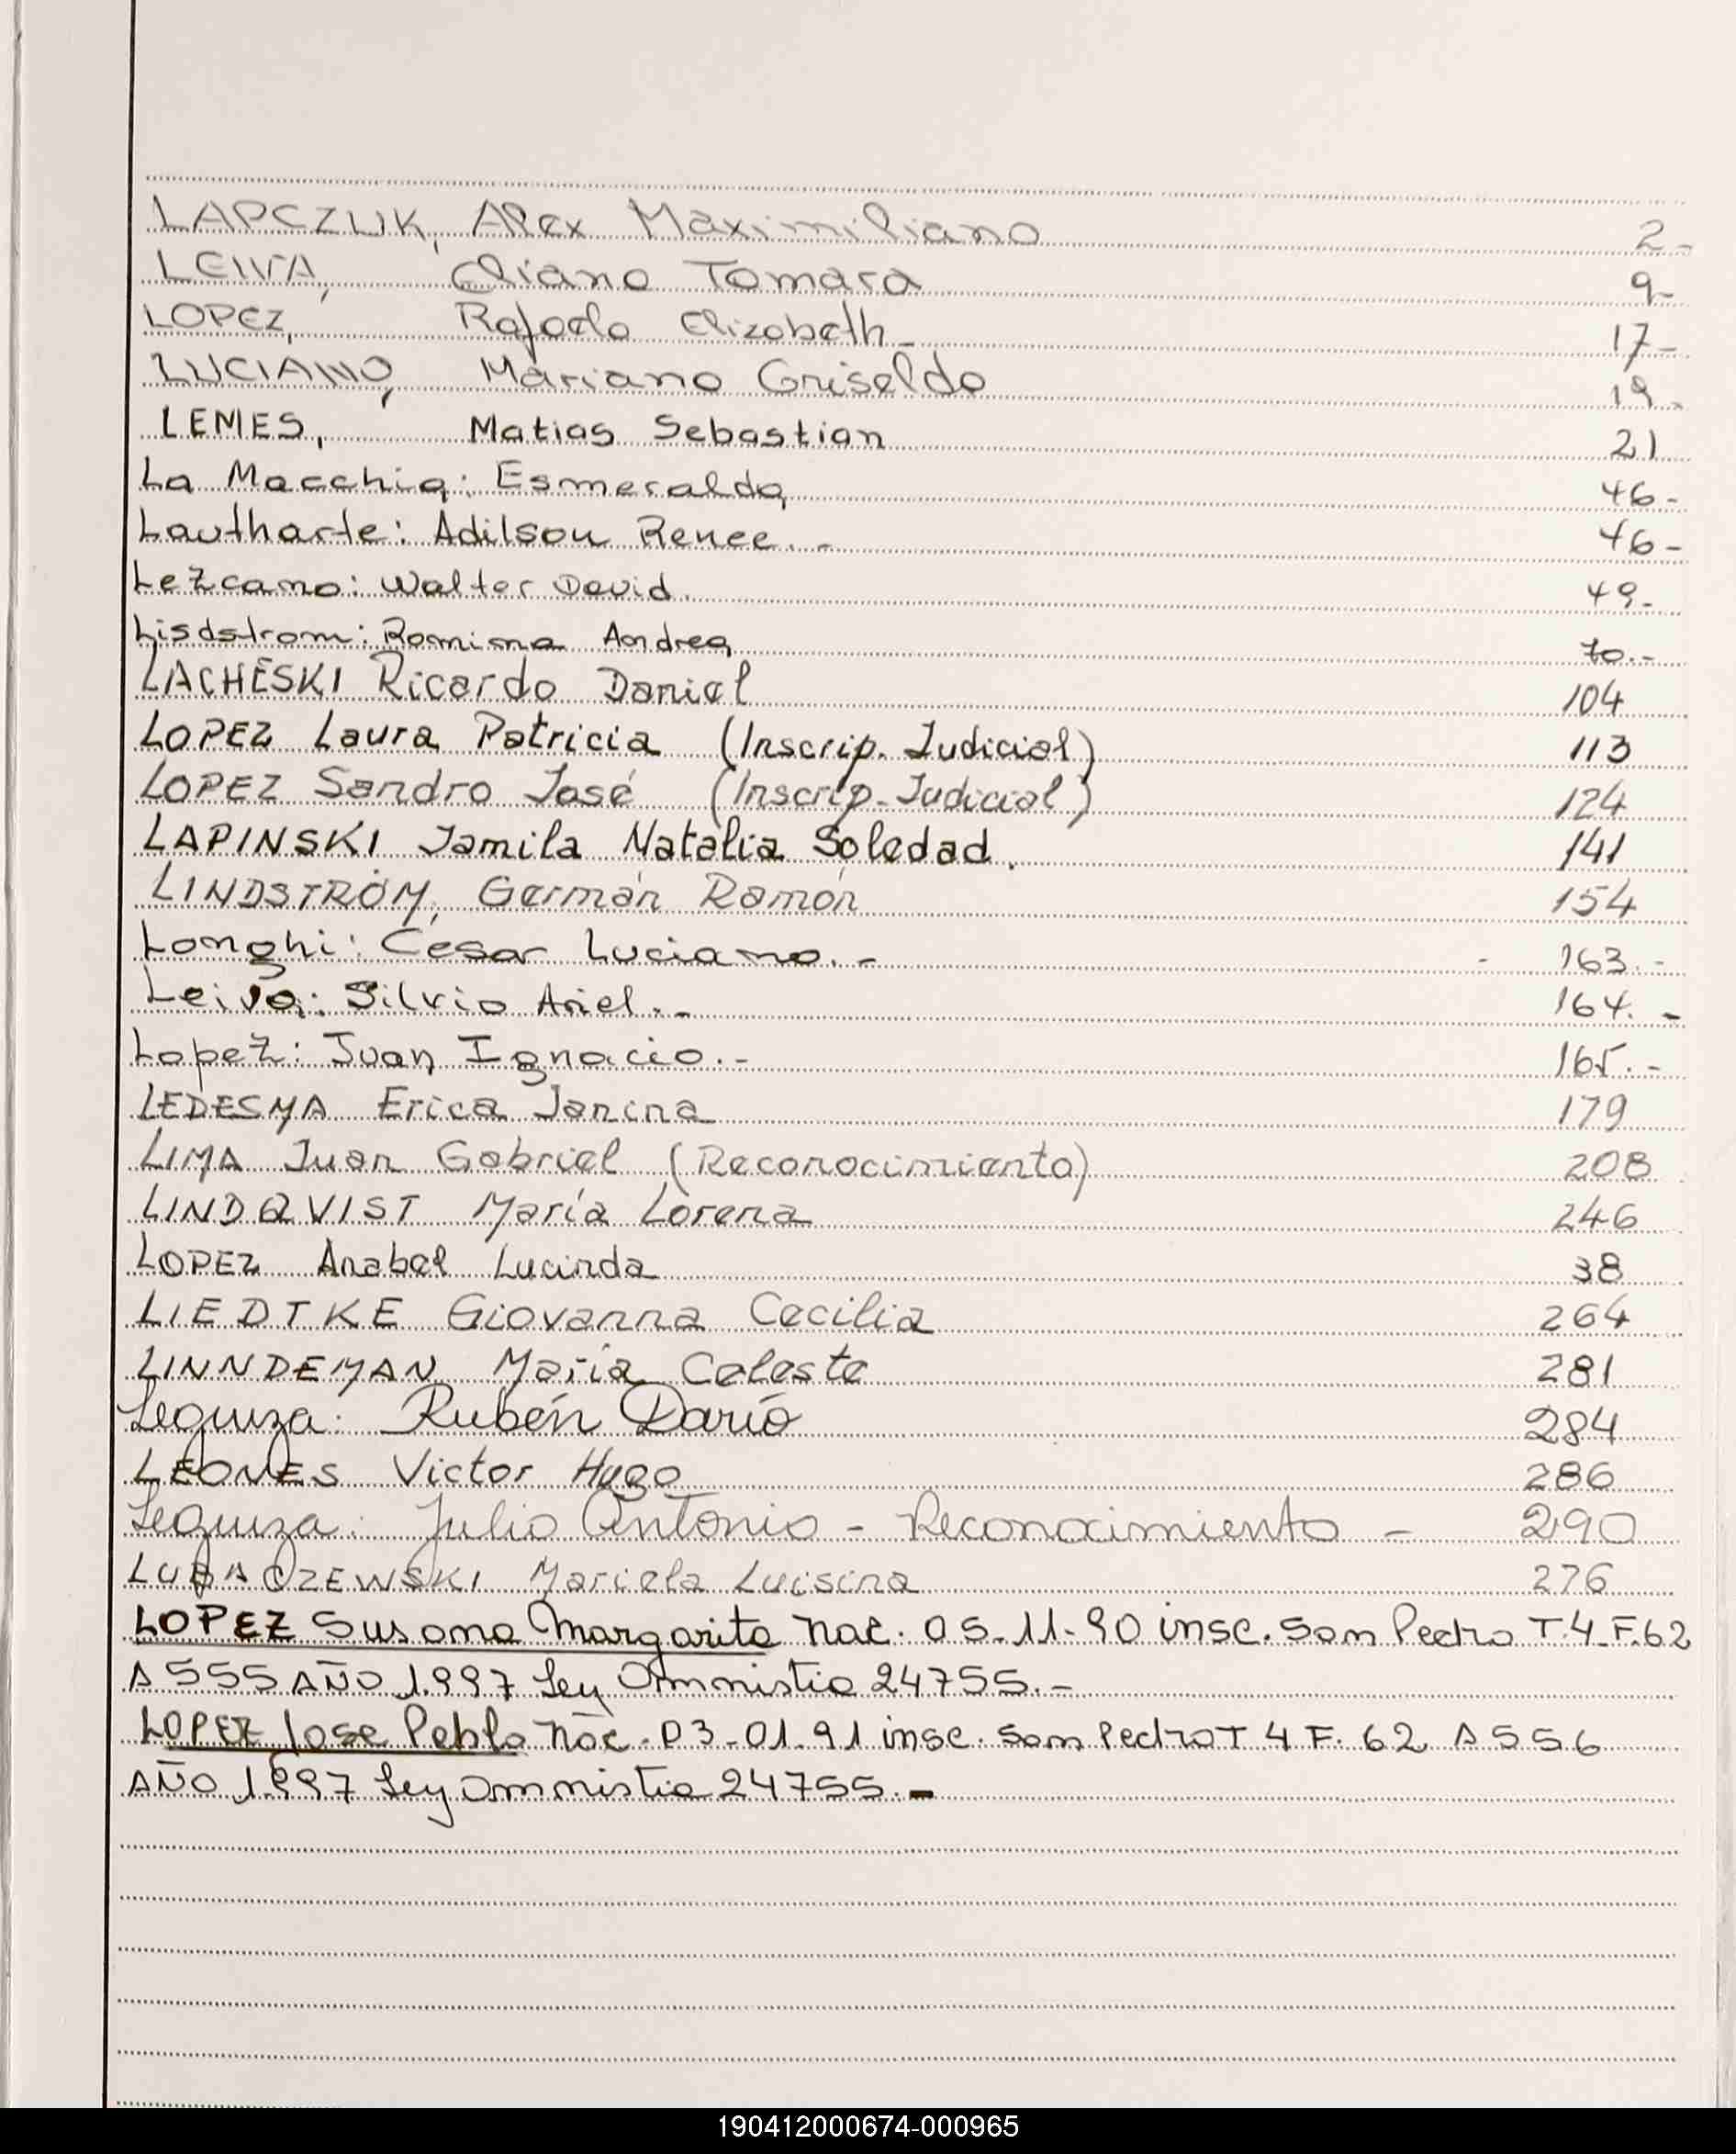 LAPCZUK, Alex Maximiliano 2-
LEIVA, Eliana Tamara 9-
LOPEZ, Rafaela Elizabeth - 17-
LUCIANO, Mariana Griselda 19-
LEMES, Matias Sebastian 21
La Macchia: Esmeralda 46-
Lautharte: Adilson Renee.- 46-
Lezcano: Walter David. 49-
Lisdstrom: Romina Andrea 70.-
LACHESKI Ricardo Daniel 104
LOPEZ Laura Patricia (Inscrip. Judicial) 113
LOPEZ Sandro José (Inscrip. Judicial) 124
LAPINSKI Jamila Natalia Soledad. 141
LINDSTRÖM, Germán Ramón 154
Longhi: Cesar Luciano.- - 163.-
Leiva: Silvio Ariel.- 164.-
Lopez: Juan Ignacio.- 165.-
LEDESMA Erica Janina 179
LIMA Juan Gabriel (Reconocimiento) 208
LINDQVIST María Lorena 246
LOPEZ Anabel Lucinda 38
LIEDTKE Giovanna Cecilia 264
LINNDEMAN María Celeste 281
Leguiza: Rubén Darío 284
LEONES Victor Hugo 286
Leguiza: Julio Antonio - Reconocimiento - 290
LUBACZEWSKI Mariela Luisina 276
LOPEZ Susana Margarita Nac. 05-11-90 insc. San Pedro T.4 F.62
A 555 AÑO 1.997 Ley Amnistia 24755.-
LOPEZ Jose Pablo Nac. 03-01-91 insc. San Pedro T 4 F. 62 A 556
AÑO 1.997 Ley Amnistia 24755.-
190412000674-000965